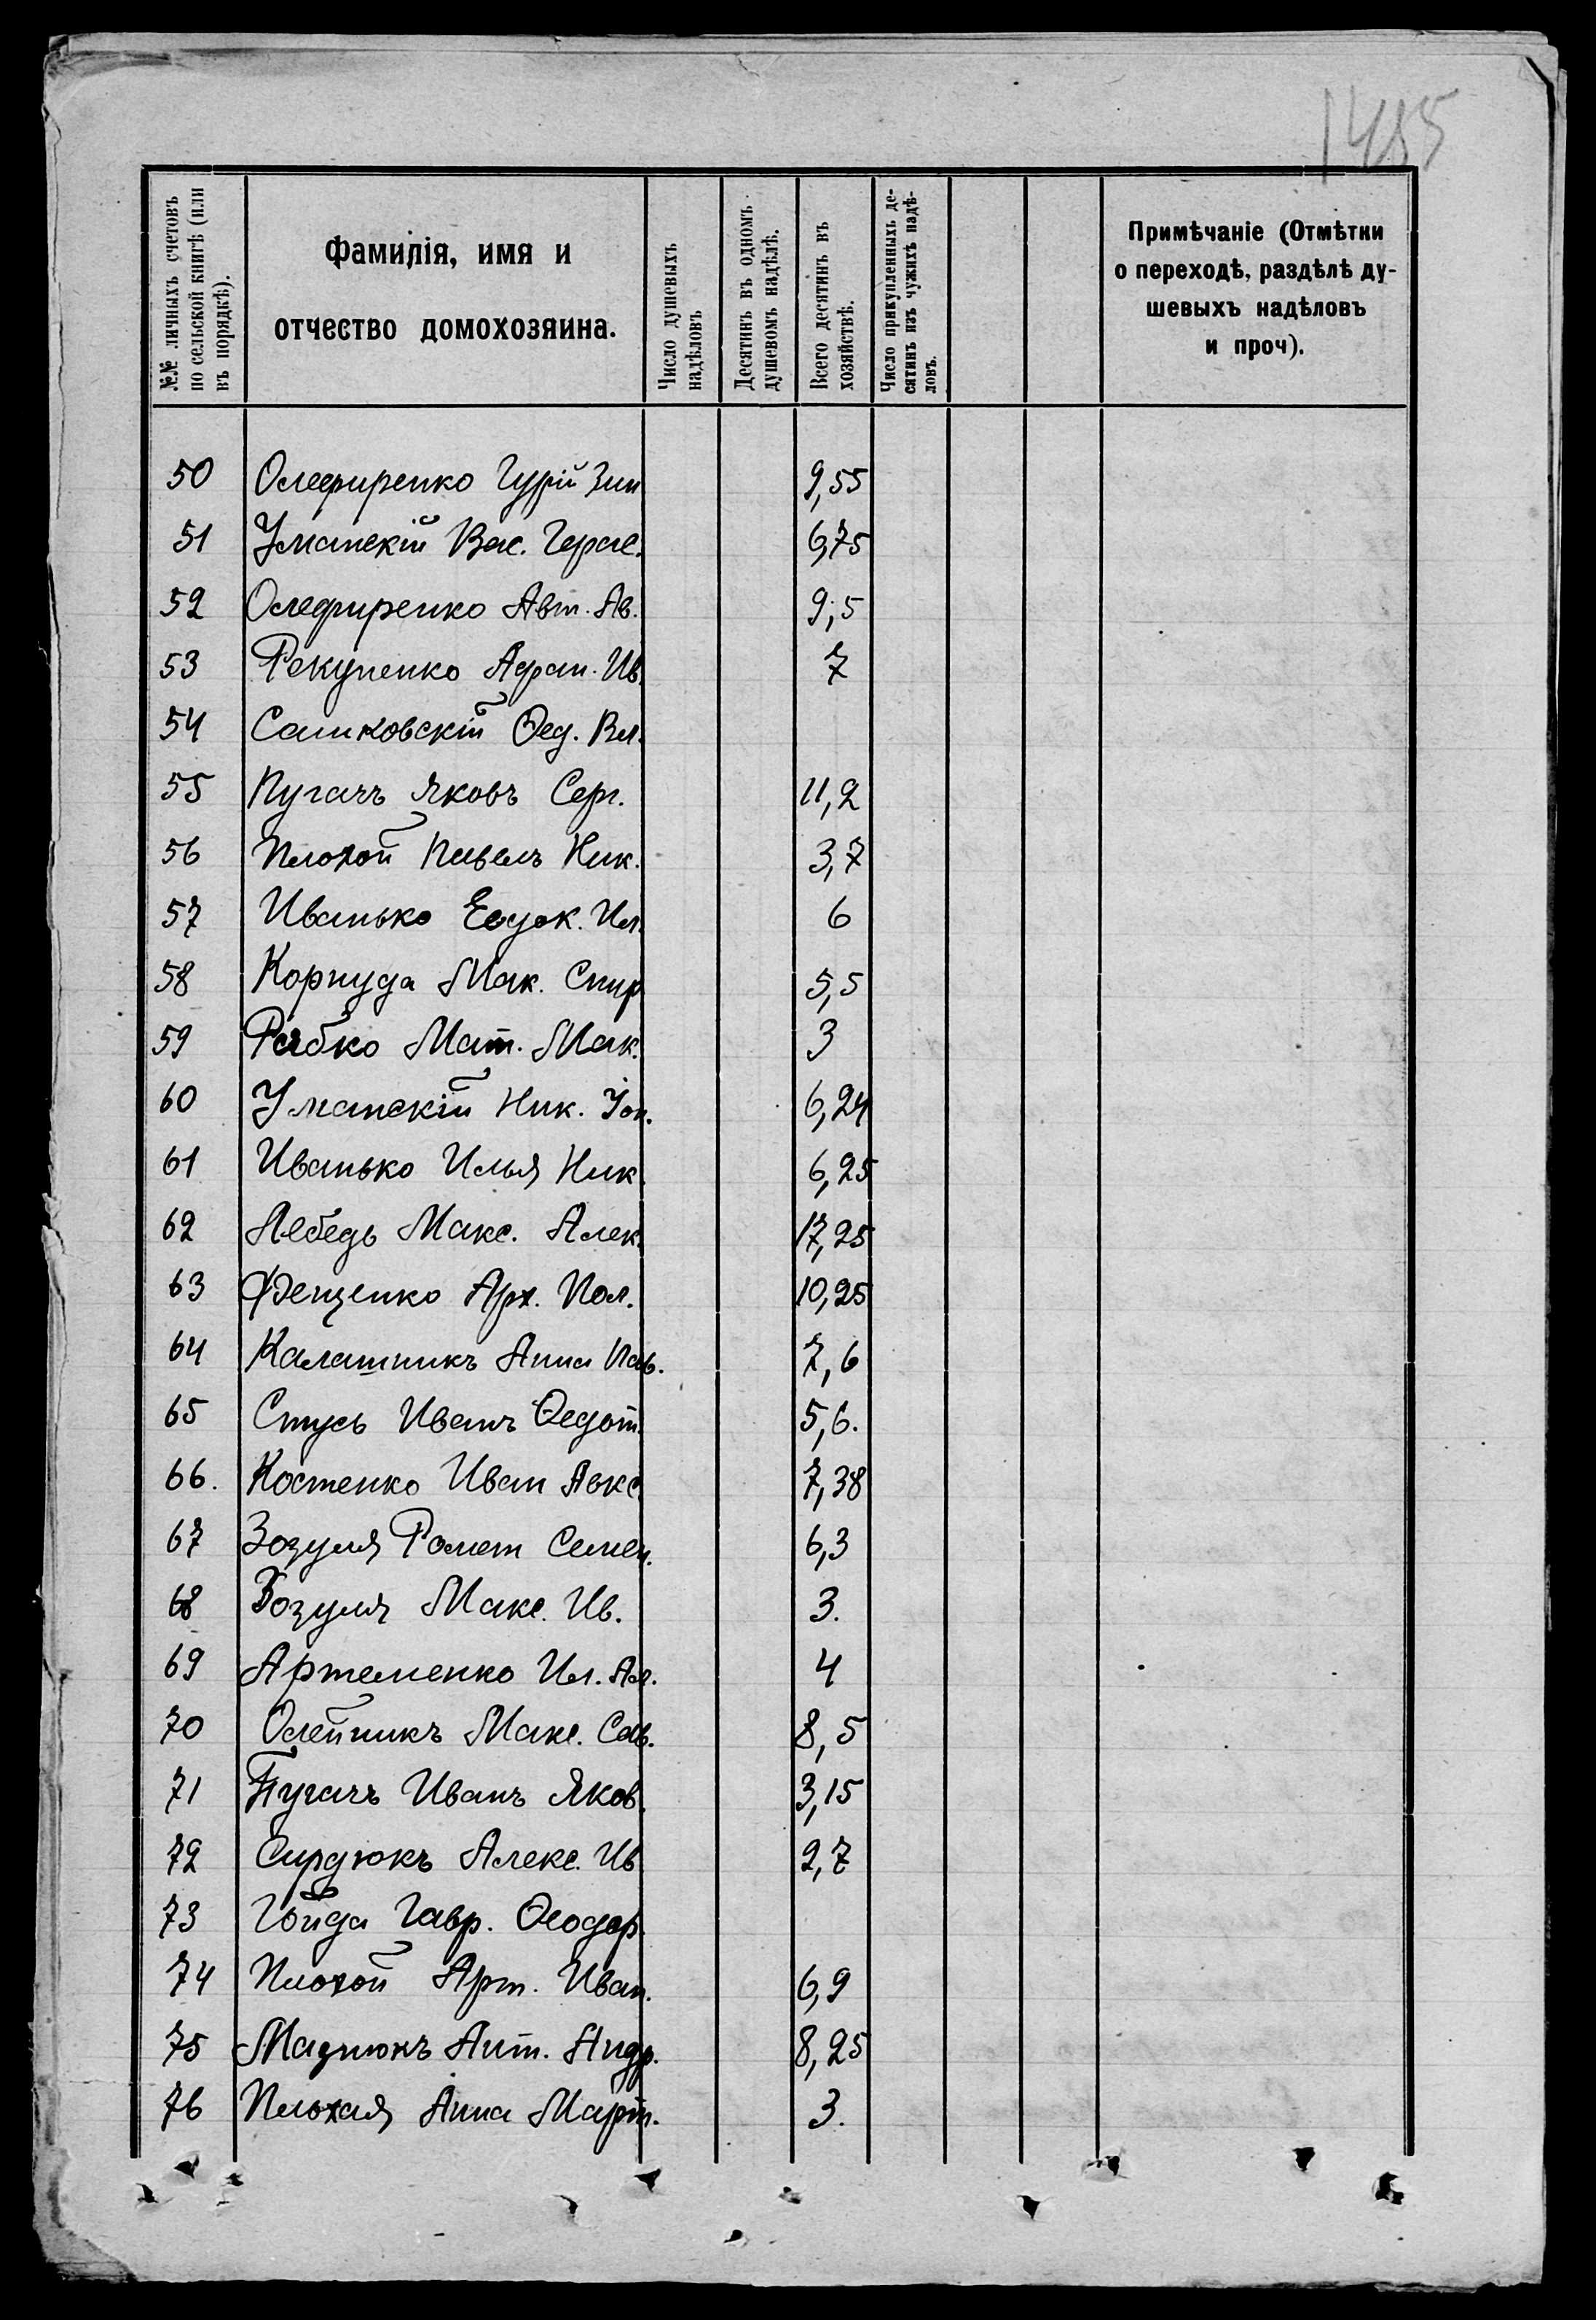 1485
№№ личныхъ счетовъ по сельской книгѣ (или въ порядкѣ).
Фамилія, имя и
отчество домохозяина.
Число душевыхъ надѣловъ
Десятинъ въ одномъ душевомъ надѣлѣ.
Всего десятинъ въ хозяйствѣ.
Число прикупленныхъ десятинъ изъ чужихъ надѣловъ.
Примѣчаніе (Отмѣтки
о переходѣ, раздѣлѣ ду-
шевыхъ надѣловъ
и проч).
50 Олефиренко Гурій Зин 9,55
51 Уманскій Вас. Герас. 6,75
52 Олефиренко Авт. Ав. 9,5
53 Рекуненко Афан. Ив. 7
54 Сашковскій Ѳед. Вл.
55 Пугачъ Яковъ Серг. 11,2
56 Плохой Павелъ Ник. 3,7
57 Иванько Евдок. Ил. 6
58 Корнуда Мак. Спир 5,5
59 Рябко Мат. Мак. 3
60 Уманскій Ник. Іон. 6,24
61 Иванько Илья Ник. 6,25
62 Лебедь Макс. Алек. 17,25
63 Фенценко Арх. Пол. 10,25
64 Калашникъ Анна Пав. 7,6
65 Стусь Иванъ Ѳедот. 5,6.
66. Костенко Иван Авкс. 7,38
67 Зозуля Роман Семен. 6,3
68 Зозуля Макс. Ив. 3.
69 Артеменко Ил. Ал. 4
70 Олейникъ Макс. Сав. 8,5
71 Пугачъ Иванъ Яков. 3,15
72 Сирдюкъ Алекс. Ив 2,7
73 Гойда Гавр. Ѳеодор.
74 Плохой Арт. Иван. 6,9
75 Мазнюкъ Ант. Андр. 8,25
76 Плохая Анна Март. 3.